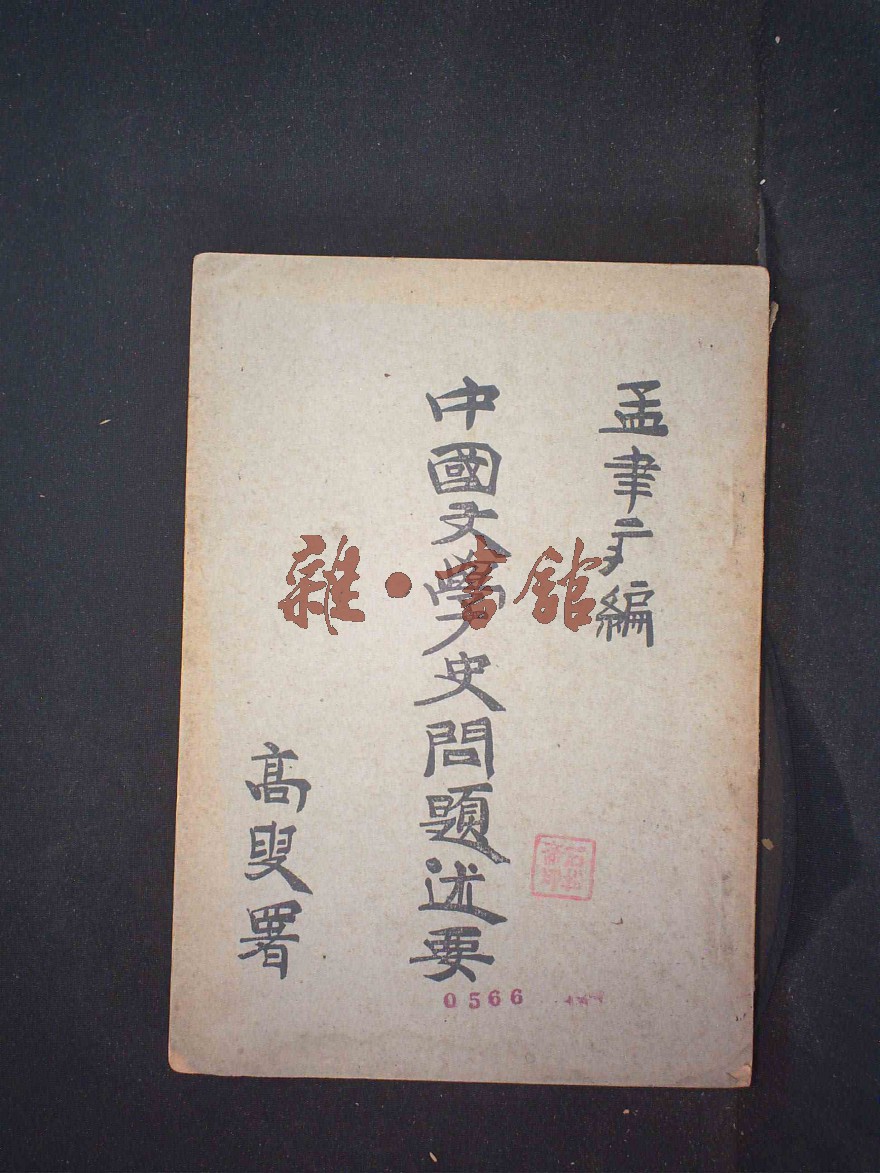 孟聿編
中國文學史問題述要
高叟署
雜•書館
0566